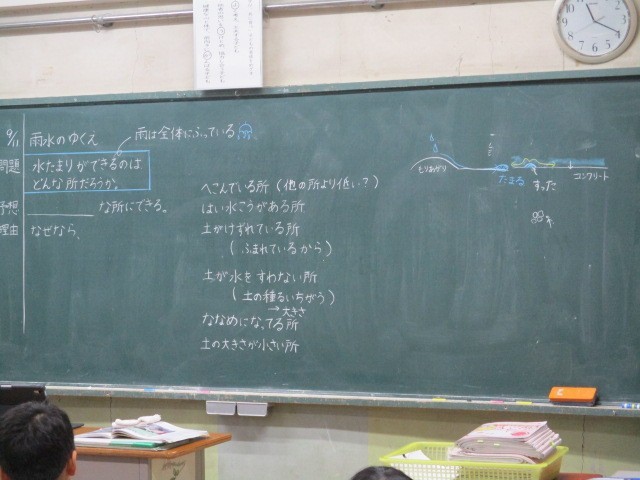 9/11 雨水のゆくえ
雨は全体にふっている
問題 水たまりができるのは
どんな所だろうか。
予想 ______ な所にできる。
理由 なぜなら、
へこんでいる所 (他の所より低い?)
はい水こうがある所
土がけずれている所
(ふまれているから)
土が水をすわない所
(土の種るいちがう)
→大きさ
ななめになってる所
土の大きさが小さい所
もりあがり
たまる
すった
コンクリート